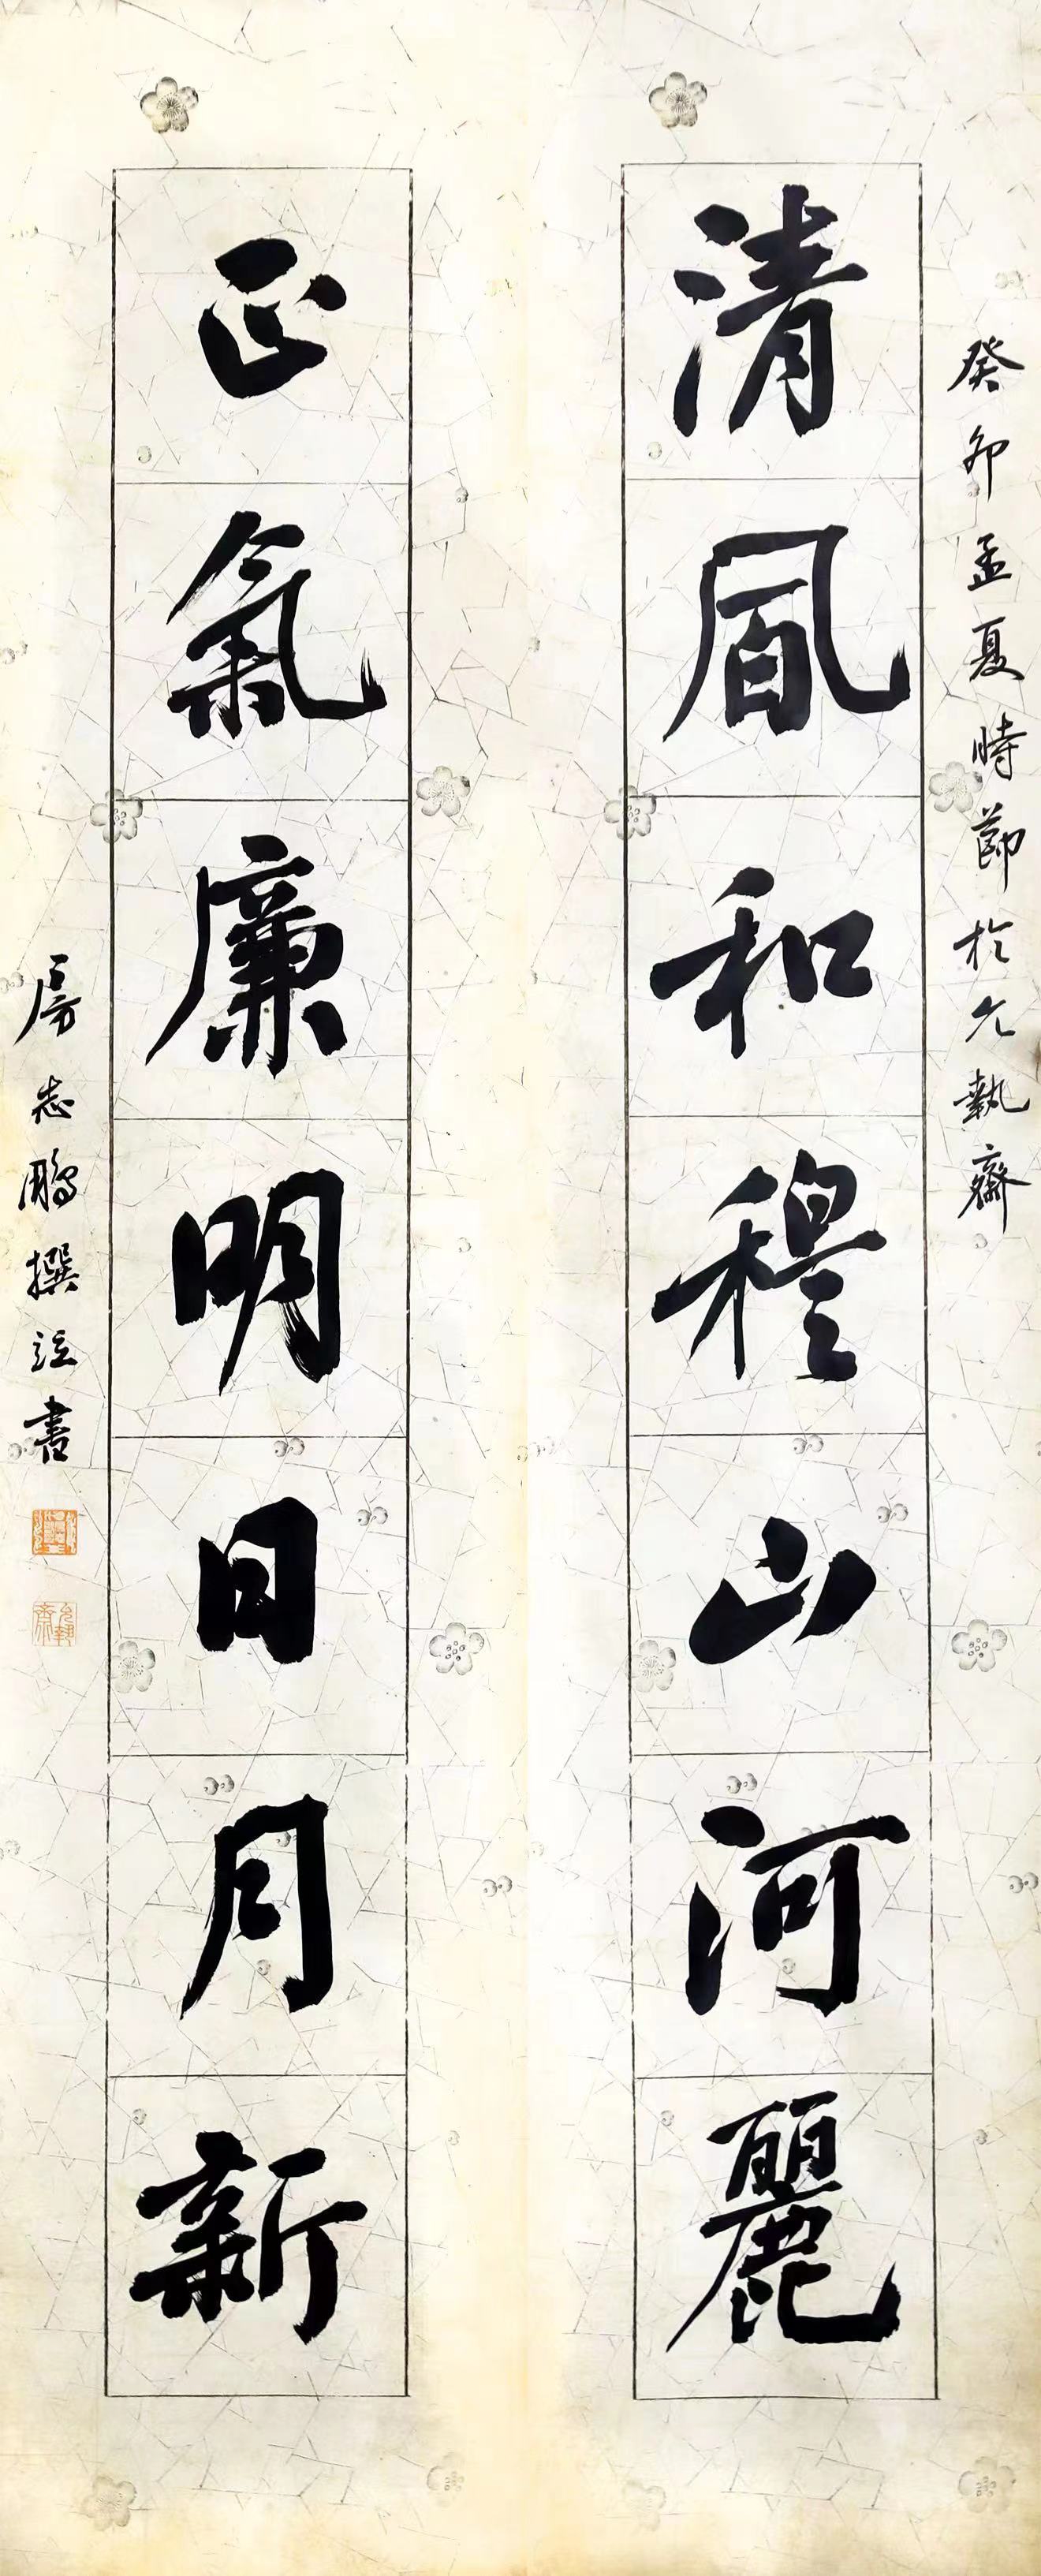 癸卯孟夏時節於允執齋
清風和穆山河麗
正氣廉明日月新
房志鵬撰并書
允執齋